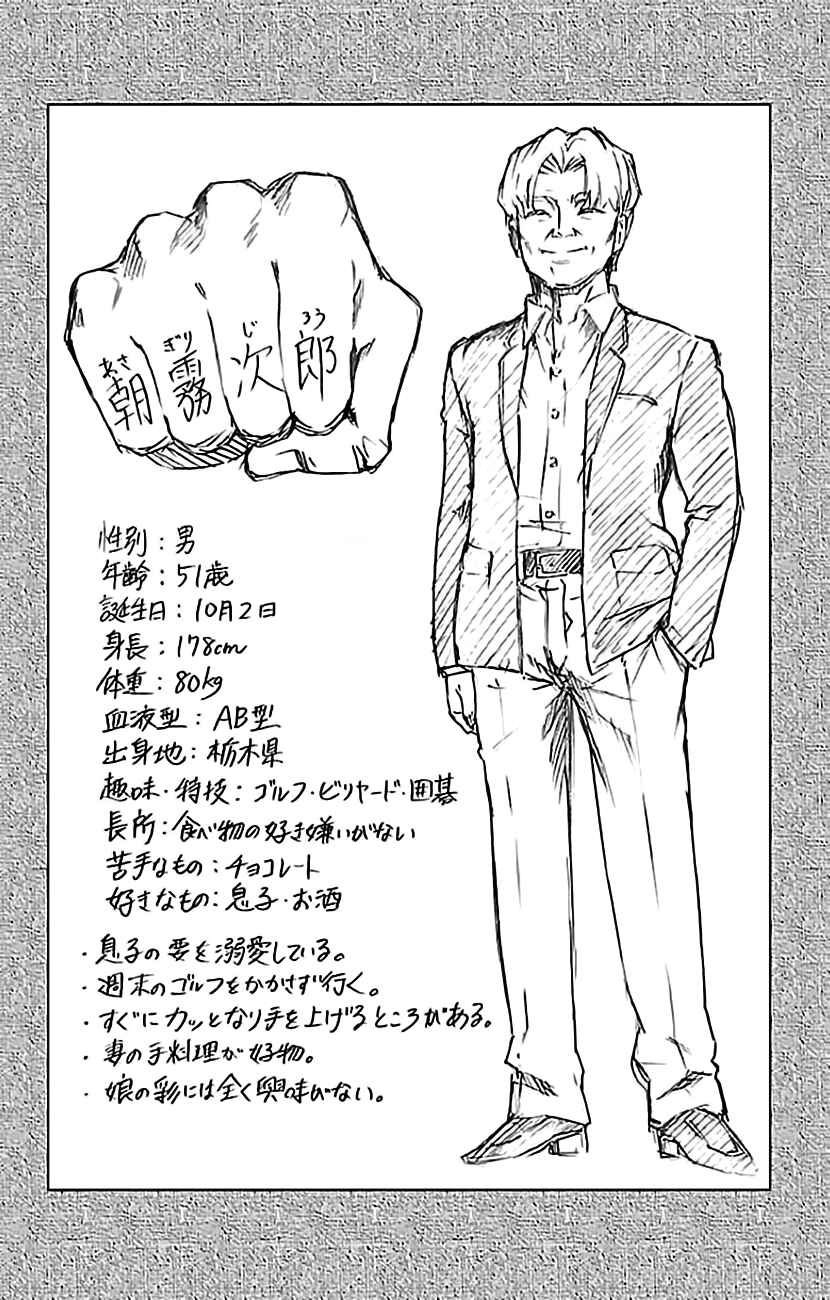 朝霧次郎
あさぎりじろう
性別：男
年齢：51歳
誕生日：10月2日
身長：178cm
体重：80kg
血液型：AB型
出身地：栃木県
趣味・特技：ゴルフ・ビリヤード・囲碁
長所：食べ物の好き嫌いがない
苦手なもの：チョコレート
好きなもの：息子・お酒
・息子の要を溺愛している。
・週末のゴルフをかかさず行く。
・すぐにカッとなり手を上げるところがある。
・妻の手料理が好物。
・娘の彩には全く興味がない。